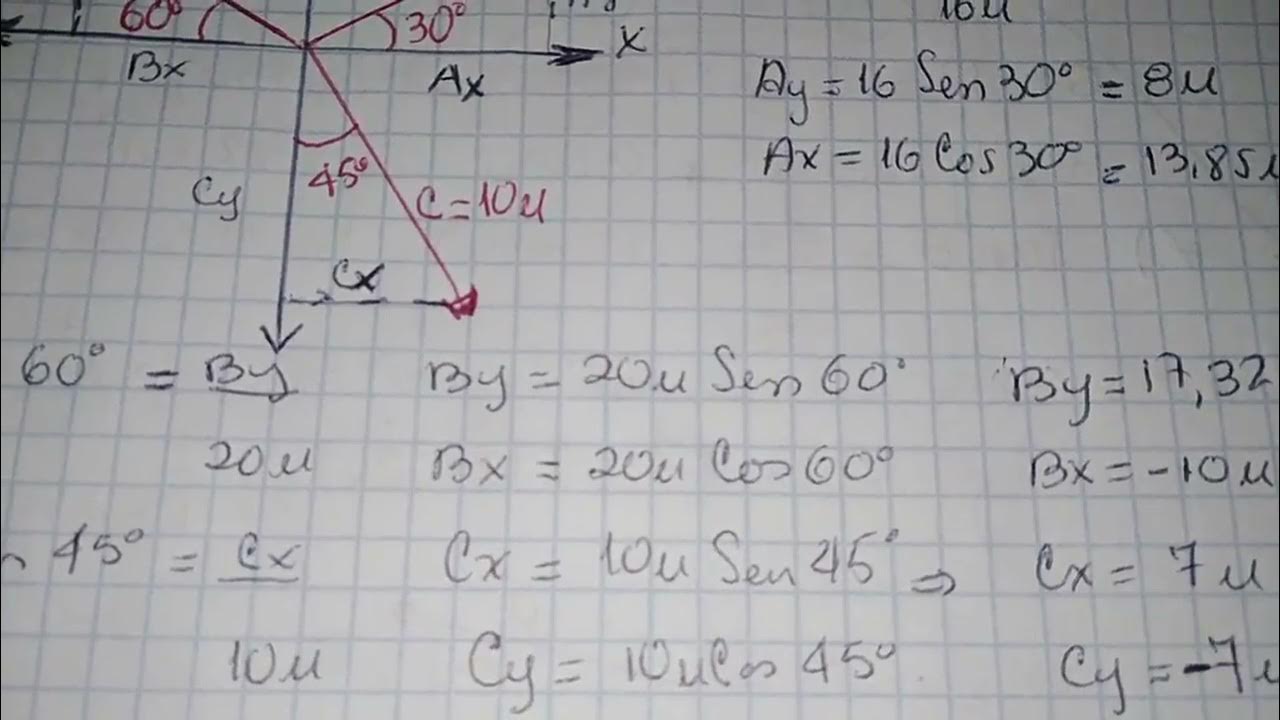 60° 30° X 16u
Bx Ax Ay = 16 Sen 30° = 8u
45° Ax = 16 Cos 30° = 13,85u
Cy C = 10u
Cx
60° = By By = 20u Sen 60° By = 17,32
20u Bx = 20u Cos 60° Bx = -10u
45° = Cx Cx = 10u Sen 45° ⇒ Cx = 7u
10u Cy = 10u Cos 45° Cy = -7u